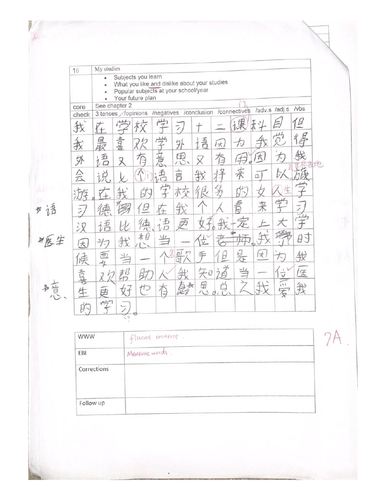 16 My studies
• Subjects you learn
• What you like and dislike about your studies
• Popular subjects at your school/year
• Your future plan
core See chapter 2
check 3 tenses /opinions /negatives /conclusion /connectives /adv.s /adj.s /vbs
我在学校学习十二课科目但
我最喜欢学外语因为我觉得
外语又有意思又有用因为我
会说七个语言我将来可以旅
游。在我的学校很多的女人生学
语 习德语但在我个人看来学习
汉语比德语更好。我一定上大学
医生 因为我想当一位老师。我小时
候要当一个歌手但是因为我
喜欢帮助人我知道当一位医
意 生更好也有意思。总之我爱我
的学习。
WWW fluent
EBI
Corrections
Follow up
7A